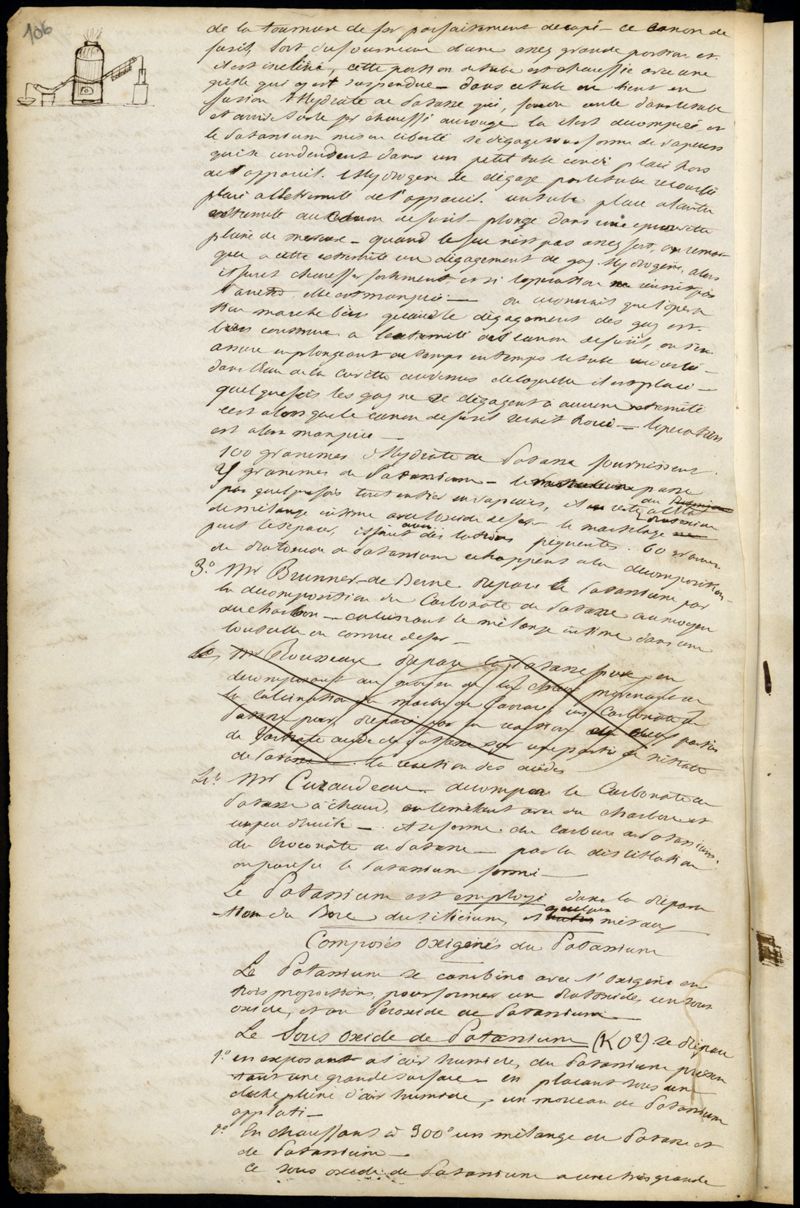 106
de la tournure de fer parfaitement decapé - ce canon de
fusil sort du fourneau d'une assez grande portion et
est incliné, cette portion de tube est chauffée avec une
grille qui y est suspendue - dans ce tube on tient en
fusion l'Hydrate de Potasse qui, fondu coule dans le tube
et arrive sur le fer chauffé au rouge là il est decomposé et
le Potassium mis en liberté se dégage sous forme de vapeurs
qui se condensent dans un petit tube placé hors
de l'appareil. l'Hydrogène se dégage par le tube recourbé
placé à l'extremité de l'appareil. un tube placé à l'autre
extremité du canon de fusil - plonge dans une eprouvette
pleine de mercure - quand le feu n'est pas assez fort, on remar
que à cette extremité un dégagement de gaz Hydrogène, alors
il faut chauffer fortement et si l'opération ne réussit pas
elle est manquée - on reconnait que l'opera
tion marche bien quand le dégagement des gaz est
bien continu à l'extremité du canon de fusil, on s'en
assure en plongeant de temps en temps le tube
dans l'eau de la cuvette au dessus de laquelle il est placé -
quelquefois les gaz ne se dégagent à aucune extremité
c'est alors que le canon de fusil serait troué - l'opération
est alors manquée -
100 grammes d'Hydrate de Potasse fournissent
grammes de Potassium - le passe
pas quelquefois tout entier en vapeurs, il en reste
de mélange intime avec l'oxide de fer - le martelage
peut le séparer, il faut avec des lotions fréquentes. 60 grammes
de Potasse de Potassium echappent à la décomposition
3.° Mr Brunner - de Berne prépare le Potassium par
la decomposition du Carbonate de Potasse au moyen
du charbon - calcinant le mélange intime dans une
bouteille ou cornue de fer -
Mr Rousseau prépare la Potasse pure en
decomposant au moyen de la chaux provenant de
la calcination du marbre de Carrare un Carbonate de
Potasse pur préparé par la réaction de deux parties
de Tartrate acide de Potasse sur une partie de nitrate
de Potasse. la réaction des acides
4.° Mr Curaudeau - decompose le Carbonate de
Potasse à chaud, en le mêlant avec du charbon et
un peu d'huile - il se forme du carbure de Potassium.
du Croconate de Potasse - par la distillation
on purifie le Potassium formé -
Le Potassium est employé dans la prépara
tion du Bore du silicium, et quelques métaux
Composés oxigénés du Potassium
Le Potassium se combine avec l'oxigène en
trois proportions, pour former un Protoxide, un sous
oxide, et un Peroxide de Potassium
Le Sous oxide de Potassium (KO²) se prépare
1.° en exposant à l'air humide, du Potassium présen
tant une grande surface - en plaçant sous une
cloche pleine d'air humide, un morceau de Potassium
applati -
2.° En chauffant à 300° un mélange de Potasse et
de Potassium -
Ce sous oxide de Potassium a une très grande